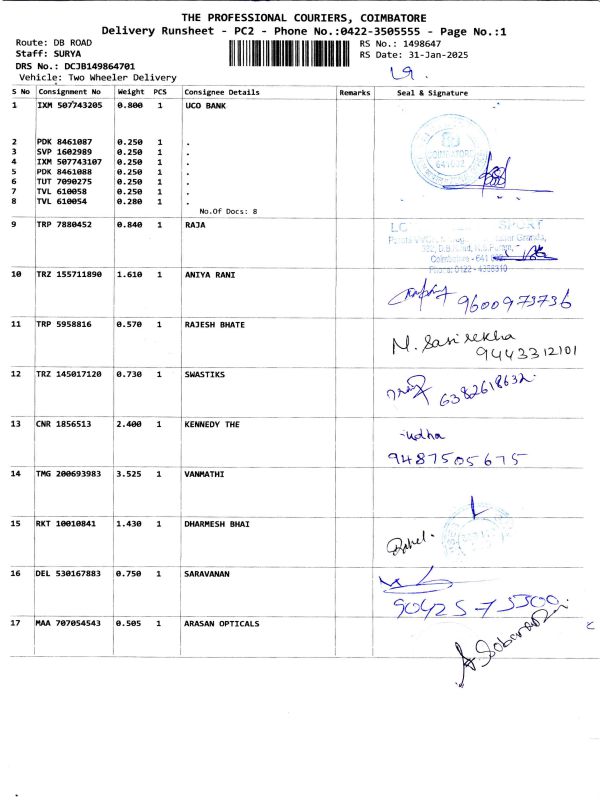 THE PROFESSIONAL COURIERS, COIMBATORE
Delivery Runsheet - PC2 - Phone No.:0422-3505555 - Page No.:1
Route: DB ROAD RS No.: 1498647
Staff: SURYA RS Date: 31-Jan-2025
DRS No.: DCJB149864701
Vehicle: Two Wheeler Delivery
S No Consignment No Weight PCS Consignee Details Remarks Seal & Signature
1 IXM 507743205 0.800 1 UCO BANK
2 PDK 8461087 0.250 1 .
3 SVP 1602989 0.250 1 .
4 IXM 507743107 0.250 1 .
5 PDK 8461088 0.250 1 .
6 TUT 7090275 0.250 1 .
7 TVL 610058 0.250 1 .
8 TVL 610054 0.280 1 .
No.Of Docs: 8
COIMBATORE
641 002
9 TRP 7880452 0.840 1 RAJA
LC SPORT
Coimbatore - 641
Phone: 0422 - 4388310
10 TRZ 155711890 1.610 1 ANIYA RANI
9600973736
11 TRP 5958816 0.570 1 RAJESH BHATE
M. Sasirekha
9443312101
12 TRZ 145017120 0.730 1 SWASTIKS
6382618632
13 CNR 1856513 2.400 1 KENNEDY THE
sudha
9487505675
14 TMG 200693983 3.525 1 VANMATHI
15 RKT 10010841 1.430 1 DHARMESH BHAI
16 DEL 530167883 0.750 1 SARAVANAN
90425-75300
17 MAA 707054543 0.505 1 ARASAN OPTICALS